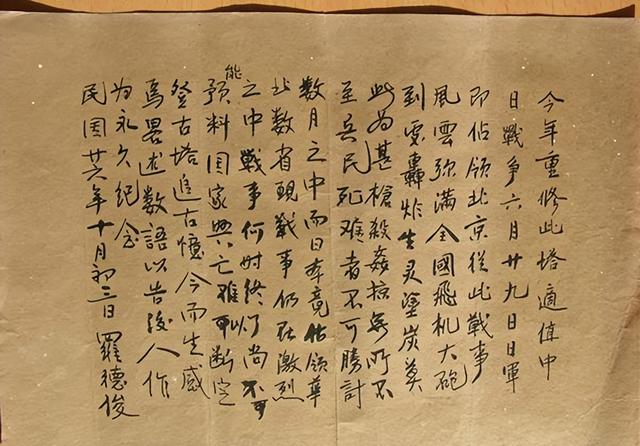 今年重修此塔適值中
日戰争六月廿九日日軍
即佔領北京從此戰事
風雲弥满全國飛机大砲
到處轟炸生灵塗炭莫
此为甚槍殺姦掠無所不
至兵民死难者不可勝計
数月之中而日本竟佔領華
北数省現戰事仍在激烈
之中戰事何时終了尚不可
能
预料国家興亡难可断定
登古塔追古懷今而生感
焉畧述数語以告後人作
为永久纪念
民国廿六年十月初三日 羅德俊